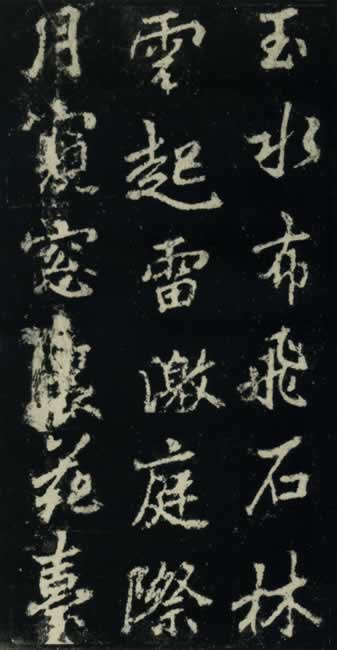 玉水布飛石林
雲起雷激庭際
月窺窓懷苑臺